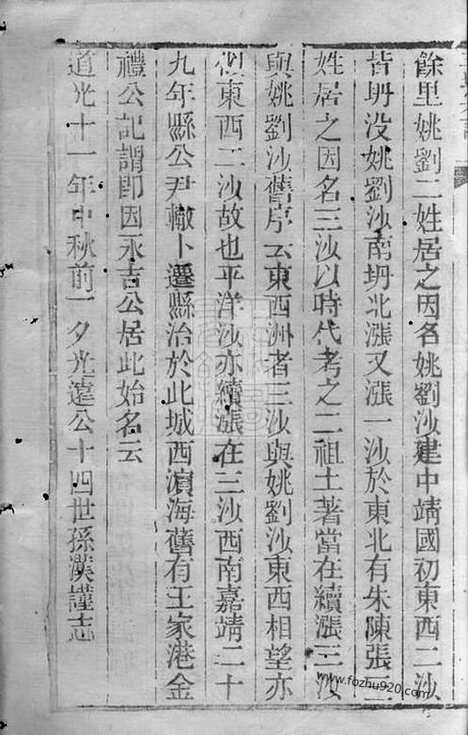 餘里姚劉二姓居之因名姚劉沙建中靖國初東西二沙
皆坍没姚劉沙南坍北漲又漲一沙於東北有朱陳張三
姓居之因名三沙以時代考之二祖土著當在續漲三沙
與姚劉沙舊序云東西洲者三沙與姚劉沙東西相望亦
似東西二沙故也平洋沙亦續漲在三沙西南嘉靖二十
九年縣公尹轍卜遷縣治於此城西濵海舊有王家港金
禮公記謂即因永吉公居此始名云
道光十一年中秋前一夕光遠公十四世孫漢謹志
www.fozhu920.com